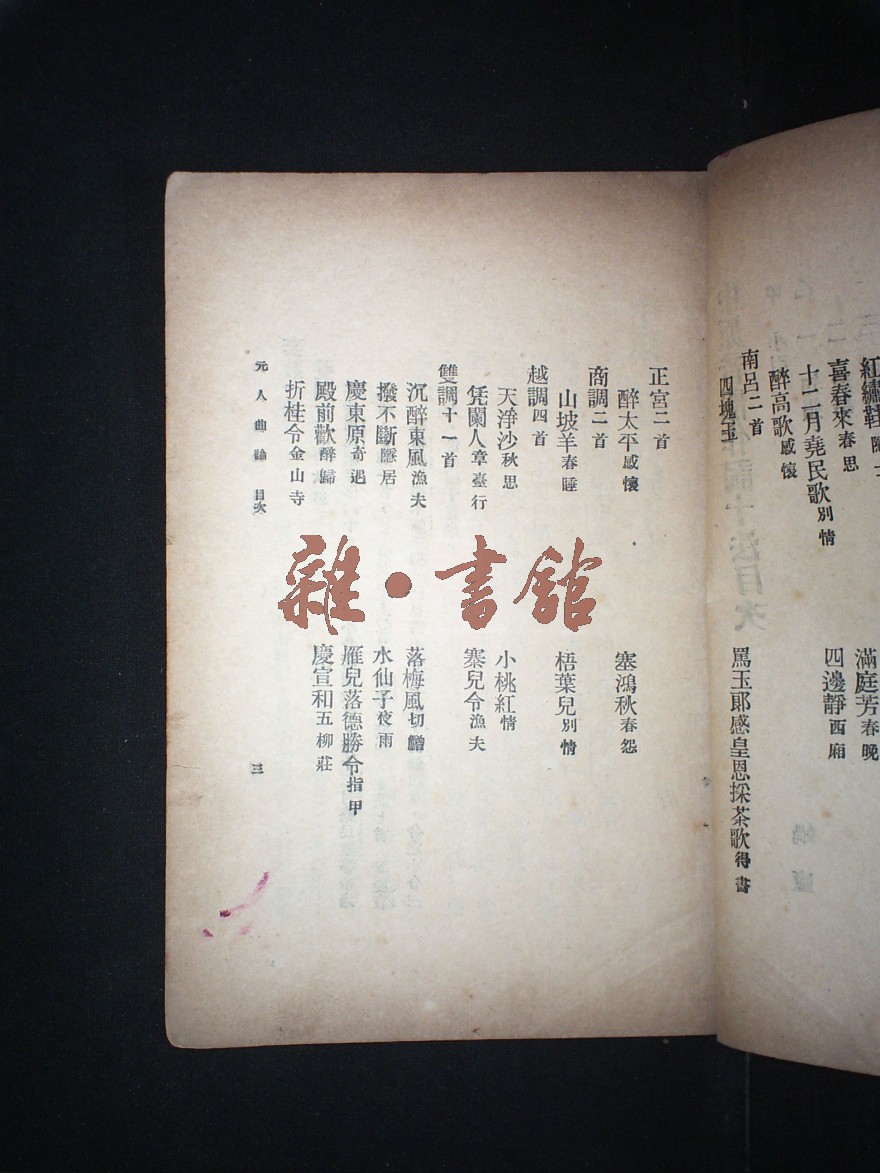 紅繡鞋
滿庭芳春晚
喜春來春思
四邊靜西廂
十二月堯民歌別情
醉高歌感懷
南呂二首
四塊玉
罵玉郎感皇恩採茶歌得書
正宮二首
醉太平感懷
塞鴻秋春怨
商調二首
山坡羊春睡
梧葉兒別情
越調四首
天淨沙秋思
小桃紅情
凭闌人章臺行
寨兒令漁夫
雙調十一首
沉醉東風漁夫
落梅風切鱠
撥不斷隱居
水仙子夜雨
慶東原奇遇
雁兒落德勝令指甲
殿前歡醉歸
慶宣和五柳莊
折桂令金山寺
元人曲論 目次
三
雜·書館